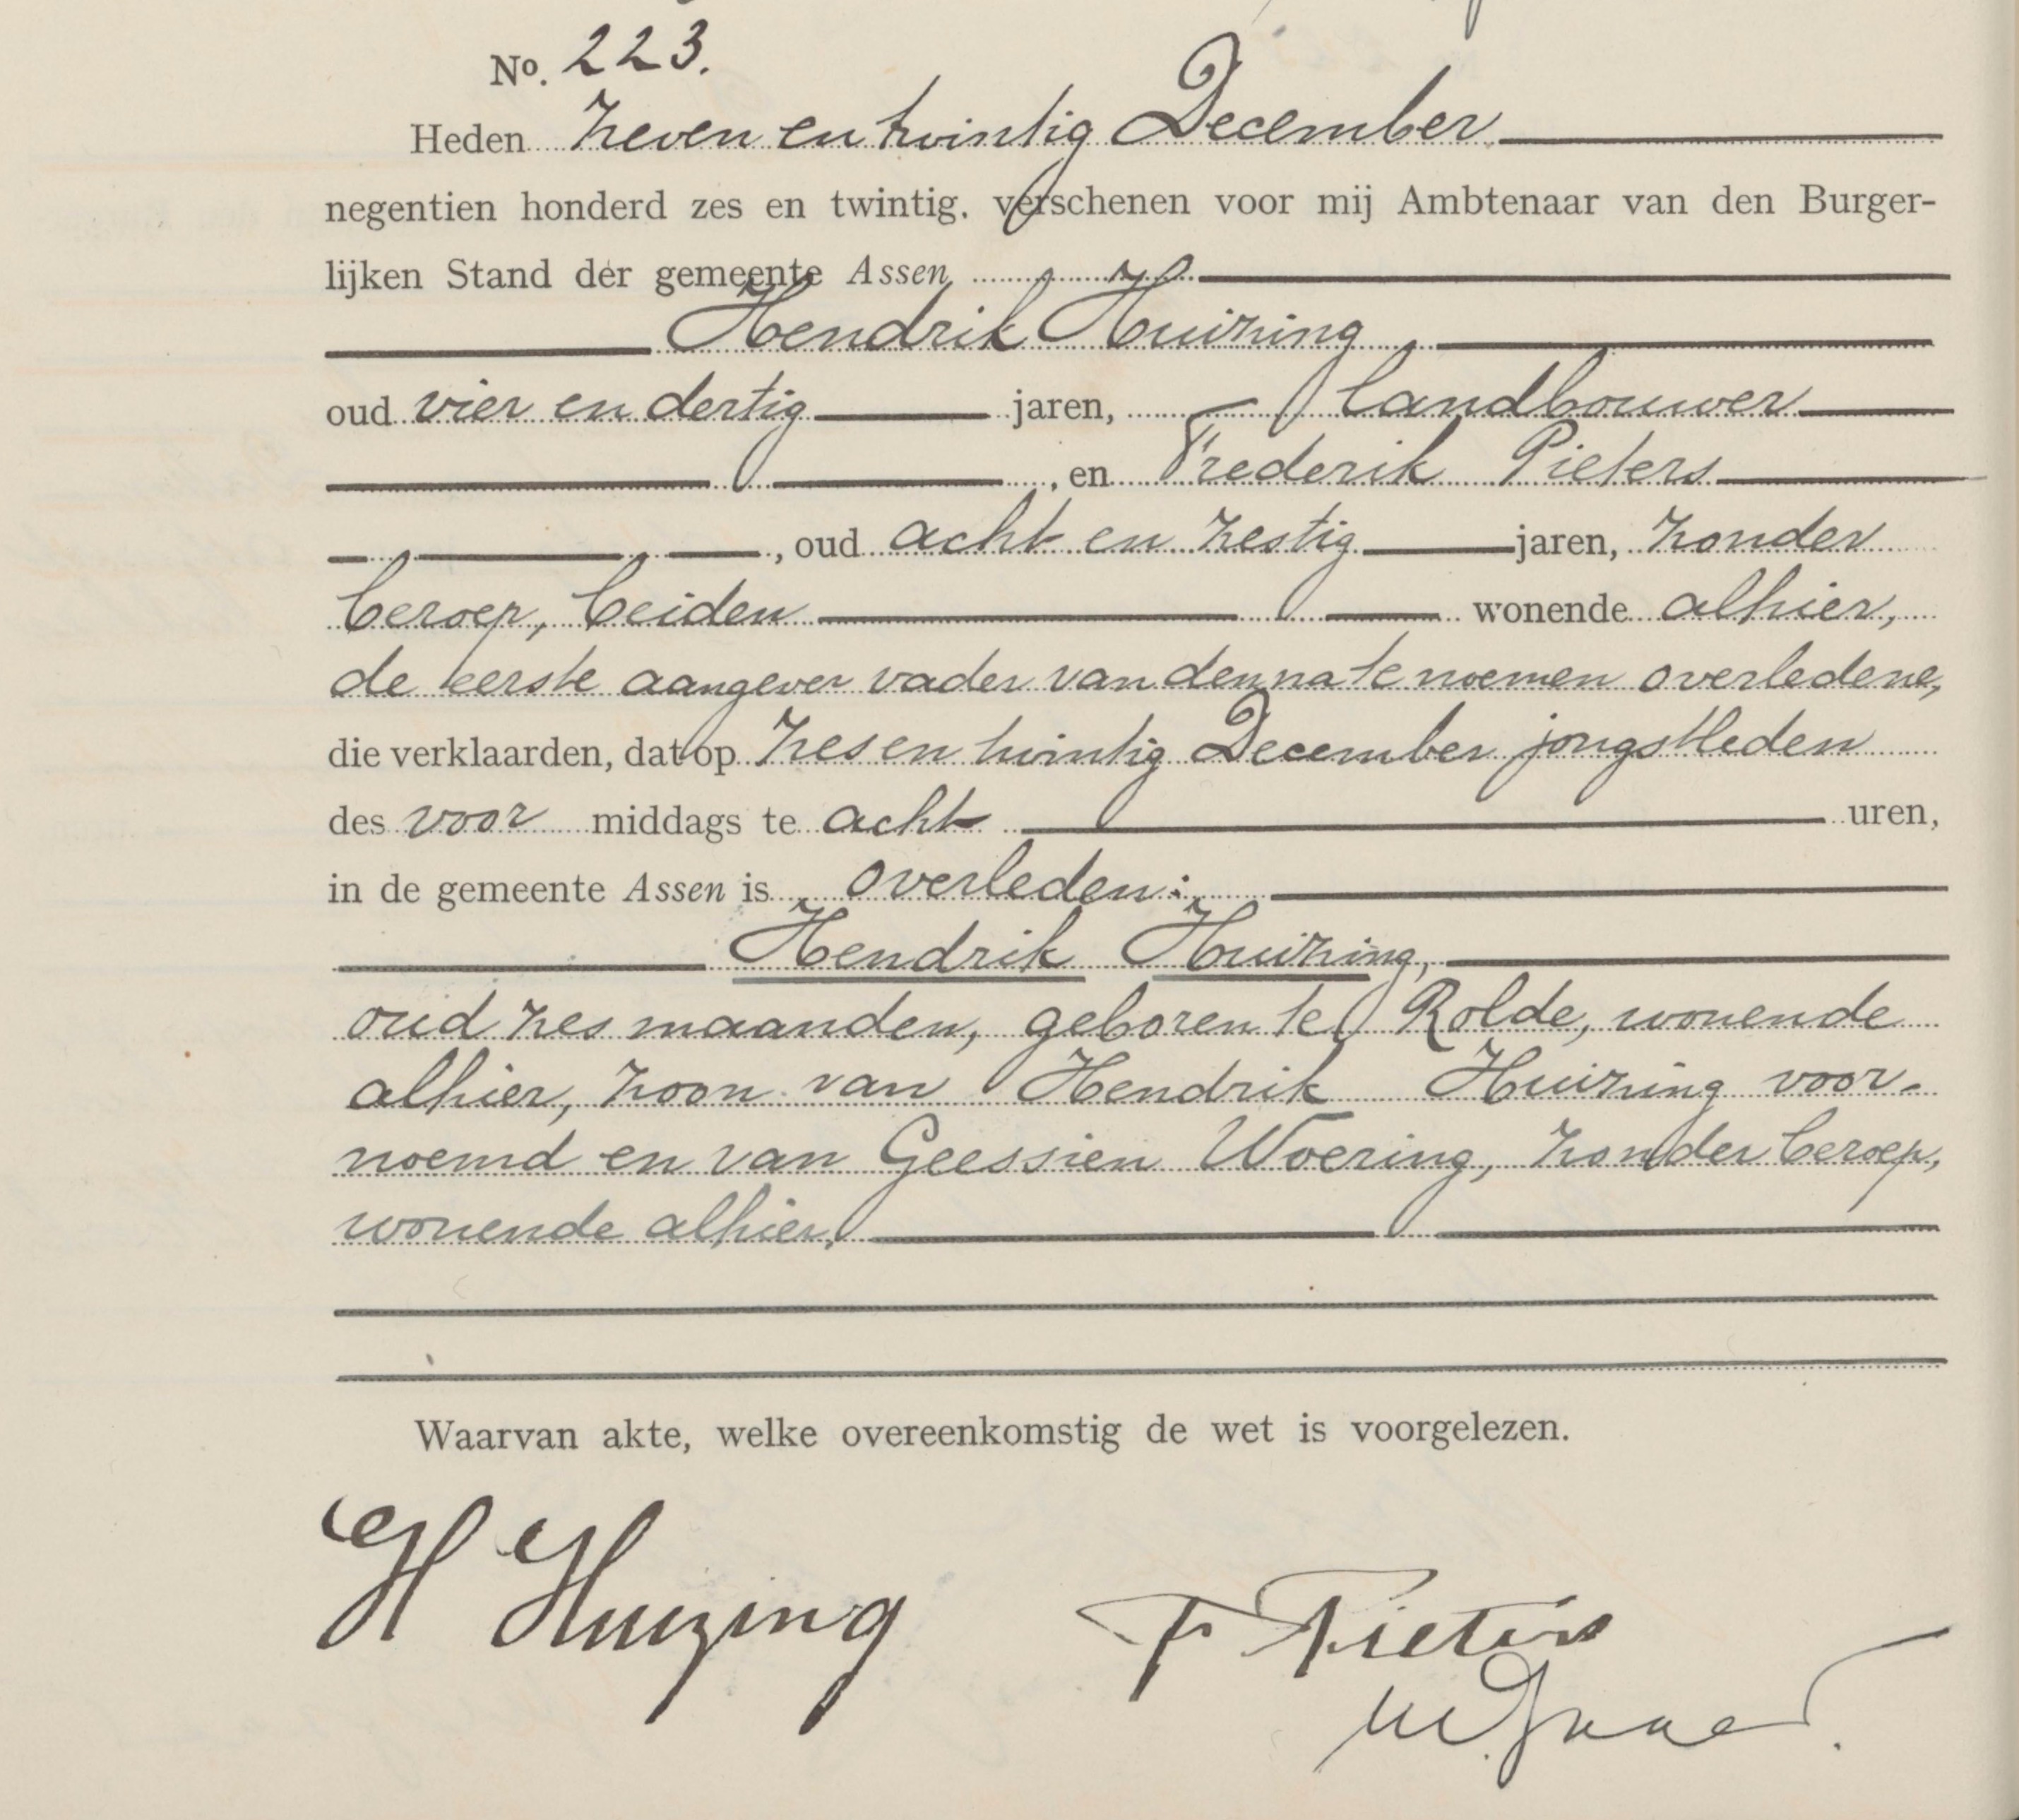 No. 223.
Heden zeven en twintig December
negentien honderd zes en twintig, verschenen voor mij Ambtenaar van den Burger-
lijken Stand der gemeente Assen
Hendrik Huizing
oud vier en dertig jaren, landbouwer
, en Frederik Pieters
, oud acht en zestig jaren, zonder
beroep, beiden wonende alhier,
de eerste aangever vader van den na te noemen overledene,
die verklaarden, dat op zes en twintig December jongstleden
des voor middags te acht uren,
in de gemeente Assen is overleden:
Hendrik Huizing,
oud zes maanden, geboren te Rolde, wonende
alhier, zoon van Hendrik Huizing voor-
noemd en van Geessien Woering, zonder beroep,
wonende alhier.
Waarvan akte, welke overeenkomstig de wet is voorgelezen.
H Huizing
F Pieters